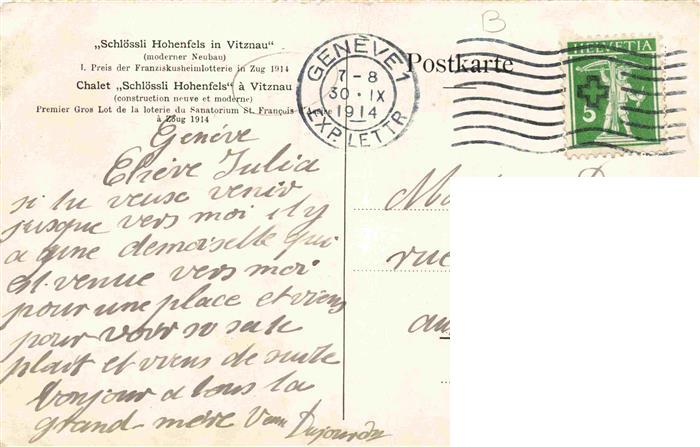 „Schlössli Hohenfels in Vitznau“
(moderner Neubau)
I. Preis der Franziskusheimlotterie in Zug 1914
Chalet „Schlössli Hohenfels“ à Vitznau
(construction neuve et moderne)
Premier Gros Lot de la loterie du Sanatorium St. François
à Zoug 1914
GENÈVE 1
7-8
30·IX
1914
EXP. LETTR.
Postkarte
B
HELVETIA
5
Genève
Chère Julia
si tu veuse venir
jusque vers moi il y
a une demoiselle qui
est venue vers moi
pour une place et viens
pour voir so sate
plait et viens de suite
bonjour a tous la
grand-mère
rue